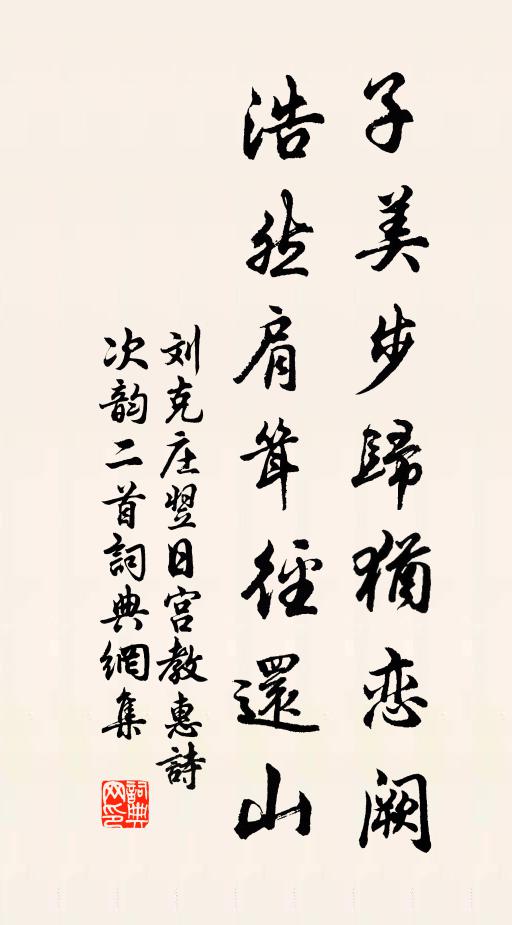 子美步歸猶恋阙
浩然肩耸徑還山
刘克庄翌日宫教惠詩
次韵二首詞典網集
詞典网印